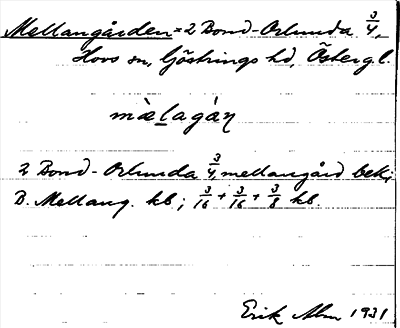 Mellangården = 2 Bond-Orlunda 3/4,
Hovs sn, Göstrings hd, Östergl.
màḷagàṇ
2 Bond-Orlunda 3/4, mellangård bek;
B. Mellang. kb; 3/16 + 3/16 + 3/8 kb.
Erik Alm 1931